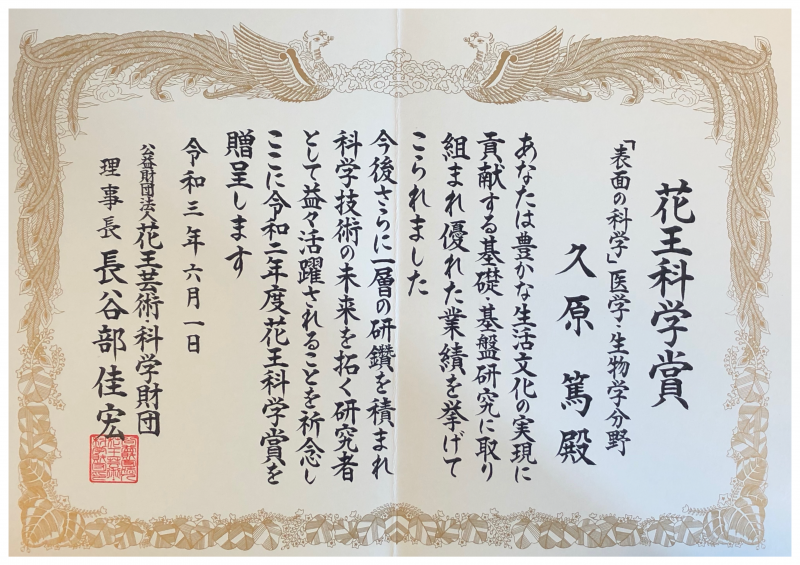 花王科学賞
「表面の科学」医学・生物学分野
久原 篤 殿
あなたは豊かな生活文化の実現に
貢献する基礎・基盤研究に取り
組まれ優れた業績を挙げて
こられました
今後さらに一層の研鑽を積まれ
科学技術の未来を拓く研究者
として益々活躍されることを祈念し
ここに令和二年度花王科学賞を
贈呈します
令和三年六月一日
公益財団法人花王芸術・科学財団
理事長 長谷部佳宏